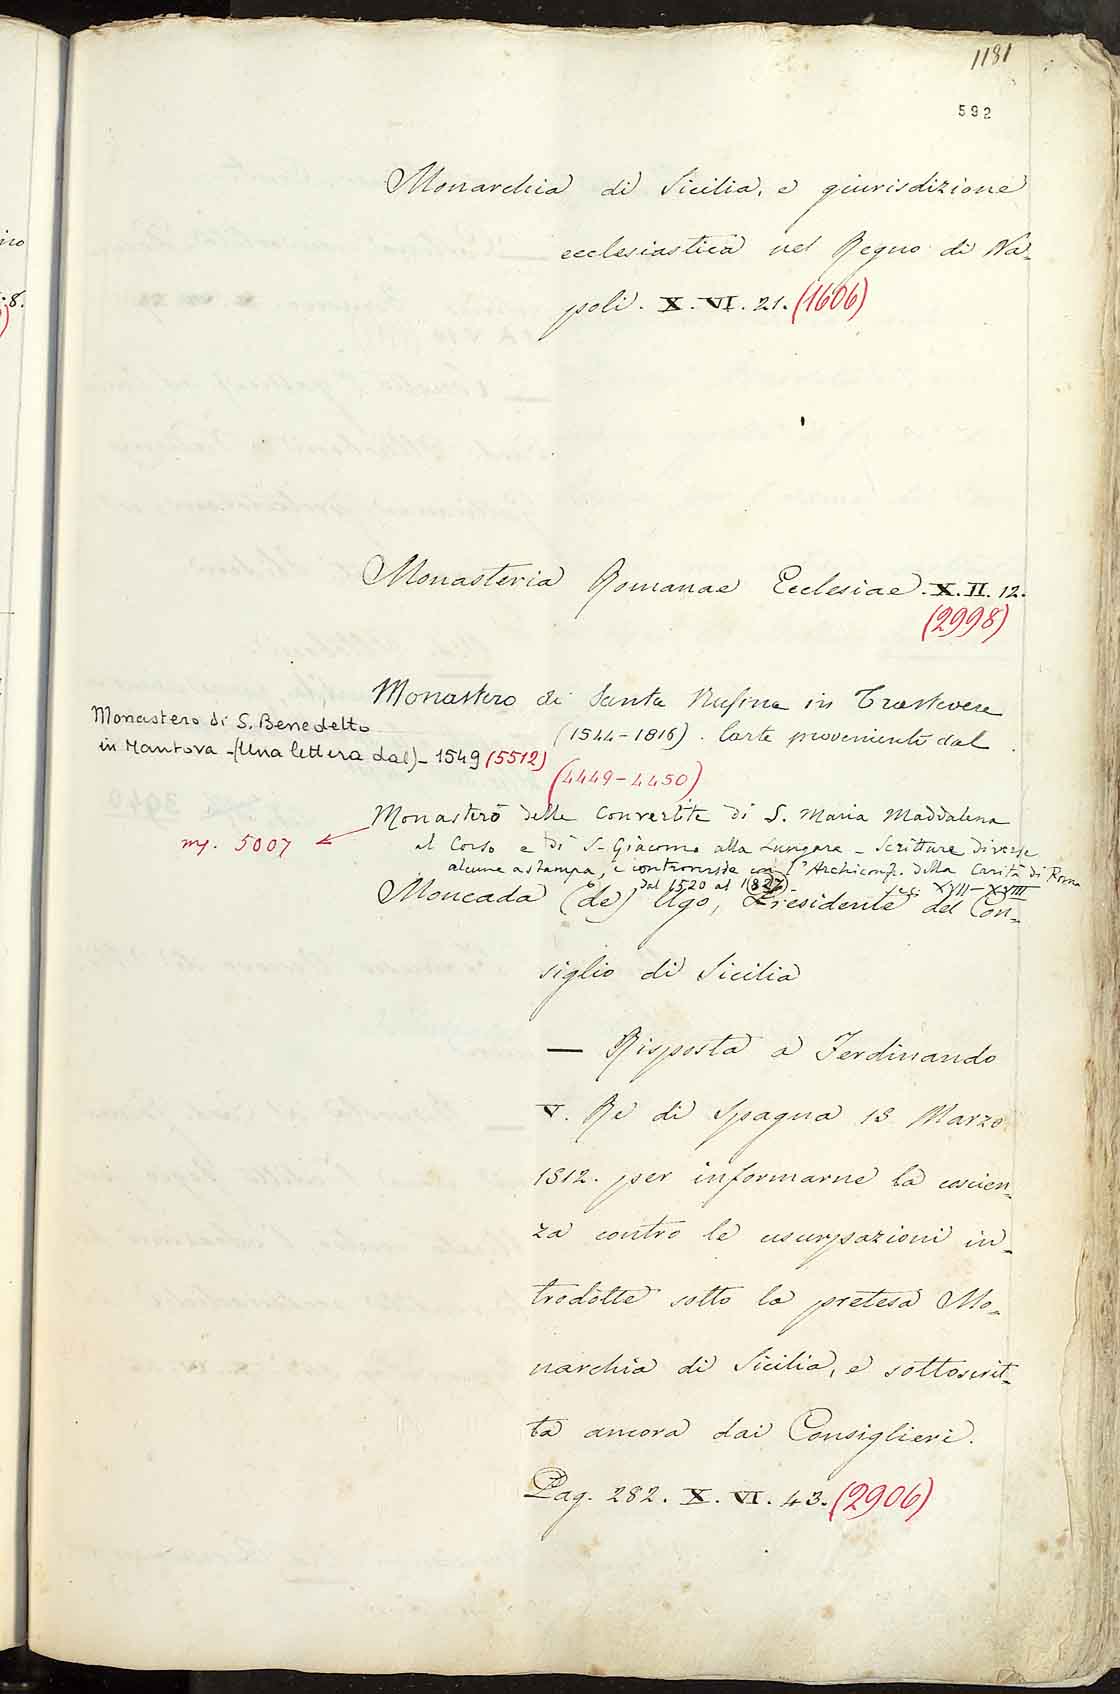 1181
592
Monarchia di Sicilia, e giurisdizione
ecclesiastica nel Regno di Na-
poli. X. VI. 21. (1606)
Monasteria Romanae Ecclesiae. X. II. 12.
(2998)
Monastero di Santa Rufina in Trastevere
(1544-1816). Carte provenienti dal
(4449-4450)
Monastero di S. Benedetto
in Mantova - (Una lettera dal) - 1549 (5512)
Monastero delle Convertite di S. Maria Maddalena
al Corso e di S. Giacomo alla Lungara - Scritture diverse
alcune a stampa, e controversie con l'Archiconf. della Carità di Roma
dal 1520 al 1827 - sec. XVII-XVIII
5007
Moncada (de) Ugo, Presidente del Con-
siglio di Sicilia
— Risposta a Ferdinando
V. Re di Spagna 13 Marzo
1812. per informarne la coscien-
za contro le usurpazioni in-
trodotte sotto la pretesa Mo-
narchia di Sicilia, e sottoscrit-
ta ancora dai Consiglieri.
Pag. 282. X. VI. 43. (2906)
ino
:8.
)